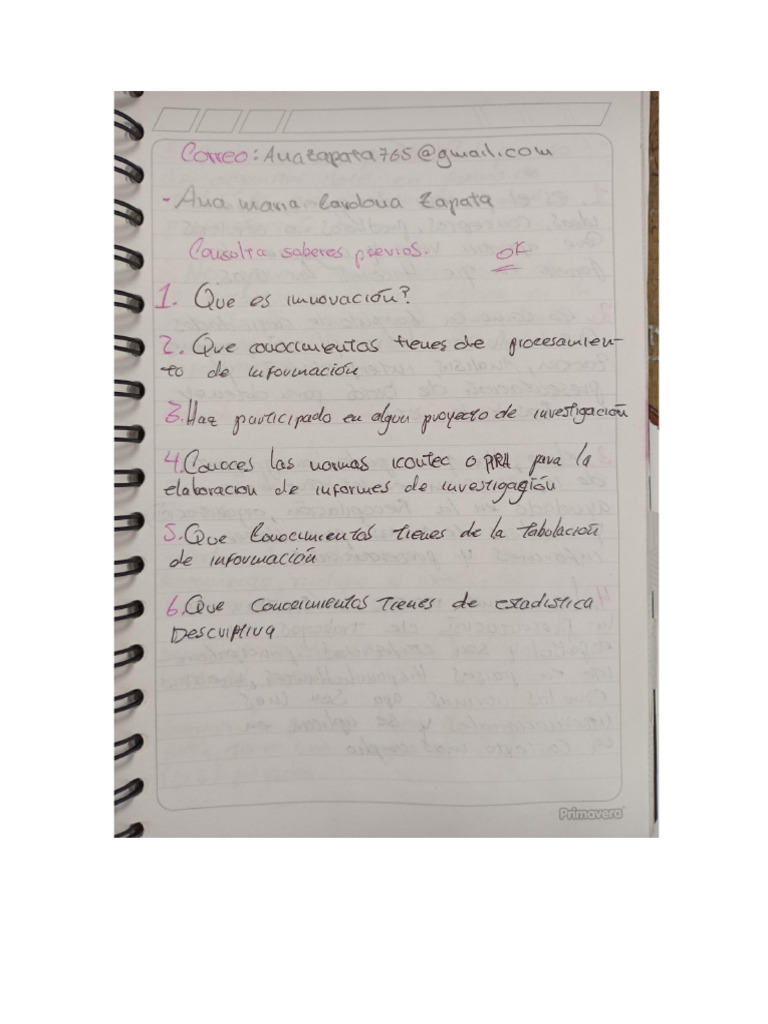 Correo: Anazapata765@gmail.com
- Ana maria Cardona Zapata
Consulta saberes previos. OK
1. Que es innovación?
2. Que conocimientos tienes de procesamien-
to de información
3. Haz participado en algun proyecto de investigación
4. Conoces las normas icontec o APA para la
elaboracion de informes de investigación
5. Que Conocimientos tienes de la tabolación
de información
6. Que Conocimientos Tienes de estadistica
Descriptiva
Primavera